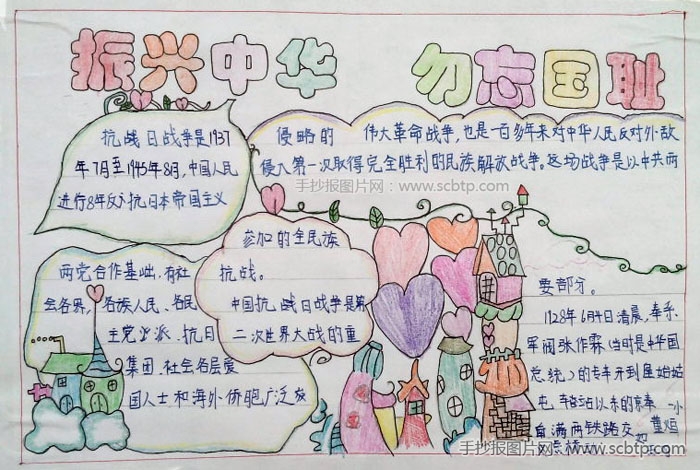 振兴中华 勿忘国耻
抗战日战争是1937
年7月至1945年8月，中国人民
进行8年反抗日本帝国主义
侵略的 伟大革命战争，也是一百多年来对中华人民反对外敌
侵入第一次取得完全胜利的民族解放战争。这场战争是以中共两
手抄报图片网：www.scbtp.com
两党合作基础，有社
会各界，各族人民、各民
主党派、抗日
集团、社会各层爱
国人士和海外侨胞广泛
参加的全民族
抗战。
中国抗战日战争是第
二次世界大战的重
要部分。
1928年6月4日清晨，奉系
军阀张作霖（当时是中华国
总统）的专车开到
屯 以东的京奉 一小
南满两铁路交
手抄报图片网：www.scbtp.com